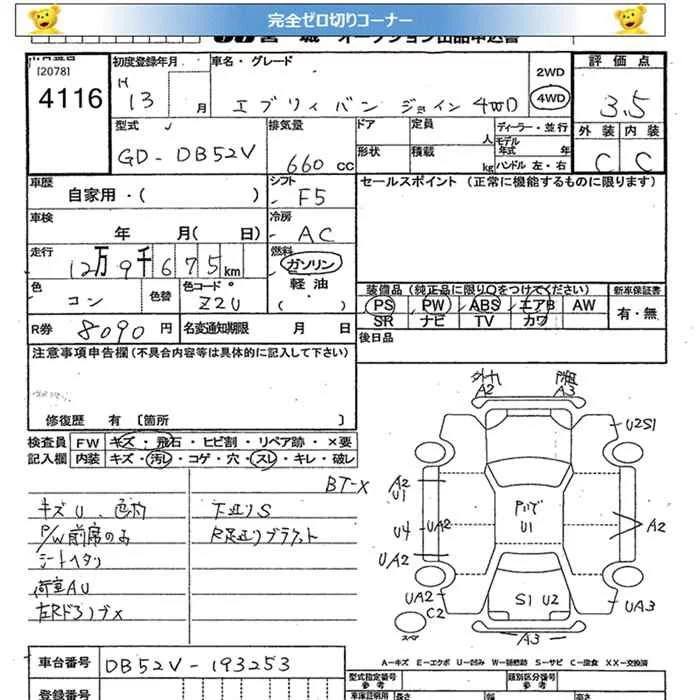 完全ゼロ切りコーナー
オークション出品申込書
[2078]
4116
初度登録年月
H 13 月
車名・グレード
エブリィバン ジョイン 4WD
2WD
4WD
評価点
3.5
外装 内装
C C
型式
GD-DB52V
排気量
660 CC
ドア
定員
人
形状
積載
kg
ディーラー・並行
モデル年式 年
ハンドル 左・右
車歴
自家用・( )
シフト
F5
セールスポイント (正常に機能するものに限ります)
車検
年 月( 日)
冷房
AC
走行
12万9千675km
燃料
ガソリン
軽油
色
コン
色替
色コード
Z2U
装備品 (純正品に限り○をつけてください)
新車保証書
PS PW ABS エアB AW
SR ナビ TV カワ
有・無
R券
8090円
名変通知期限 月 日
後日品
注意事項申告欄(不具合内容等は具体的に記入して下さい)
修復歴 有 〔箇所 〕
検査員記入欄
FW キズ・飛石・ヒビ割・リペア跡・×要
内装 キズ・汚レ・コゲ・穴・スレ・キレ・破レ
BT-X
キズU、色ボケ
下廻りS
P/W前席のみ
R足廻りブラケット
シートヘタリ
荷室AU
左RドアノブX
A2
A3
U2S1
A2
U1
U4
UA2
UA2
U1
A2
UA2
C2
S1 U2
UA3
A3
スペア
A-キズ E-エクボ U-凹み W-補修跡 S-サビ C-腐食 XX-交換済
車台番号
DB52V-193253
登録番号
型式指定番号
参考
類別区分番号
参考
車庫証明用
長さ
幅
高さ